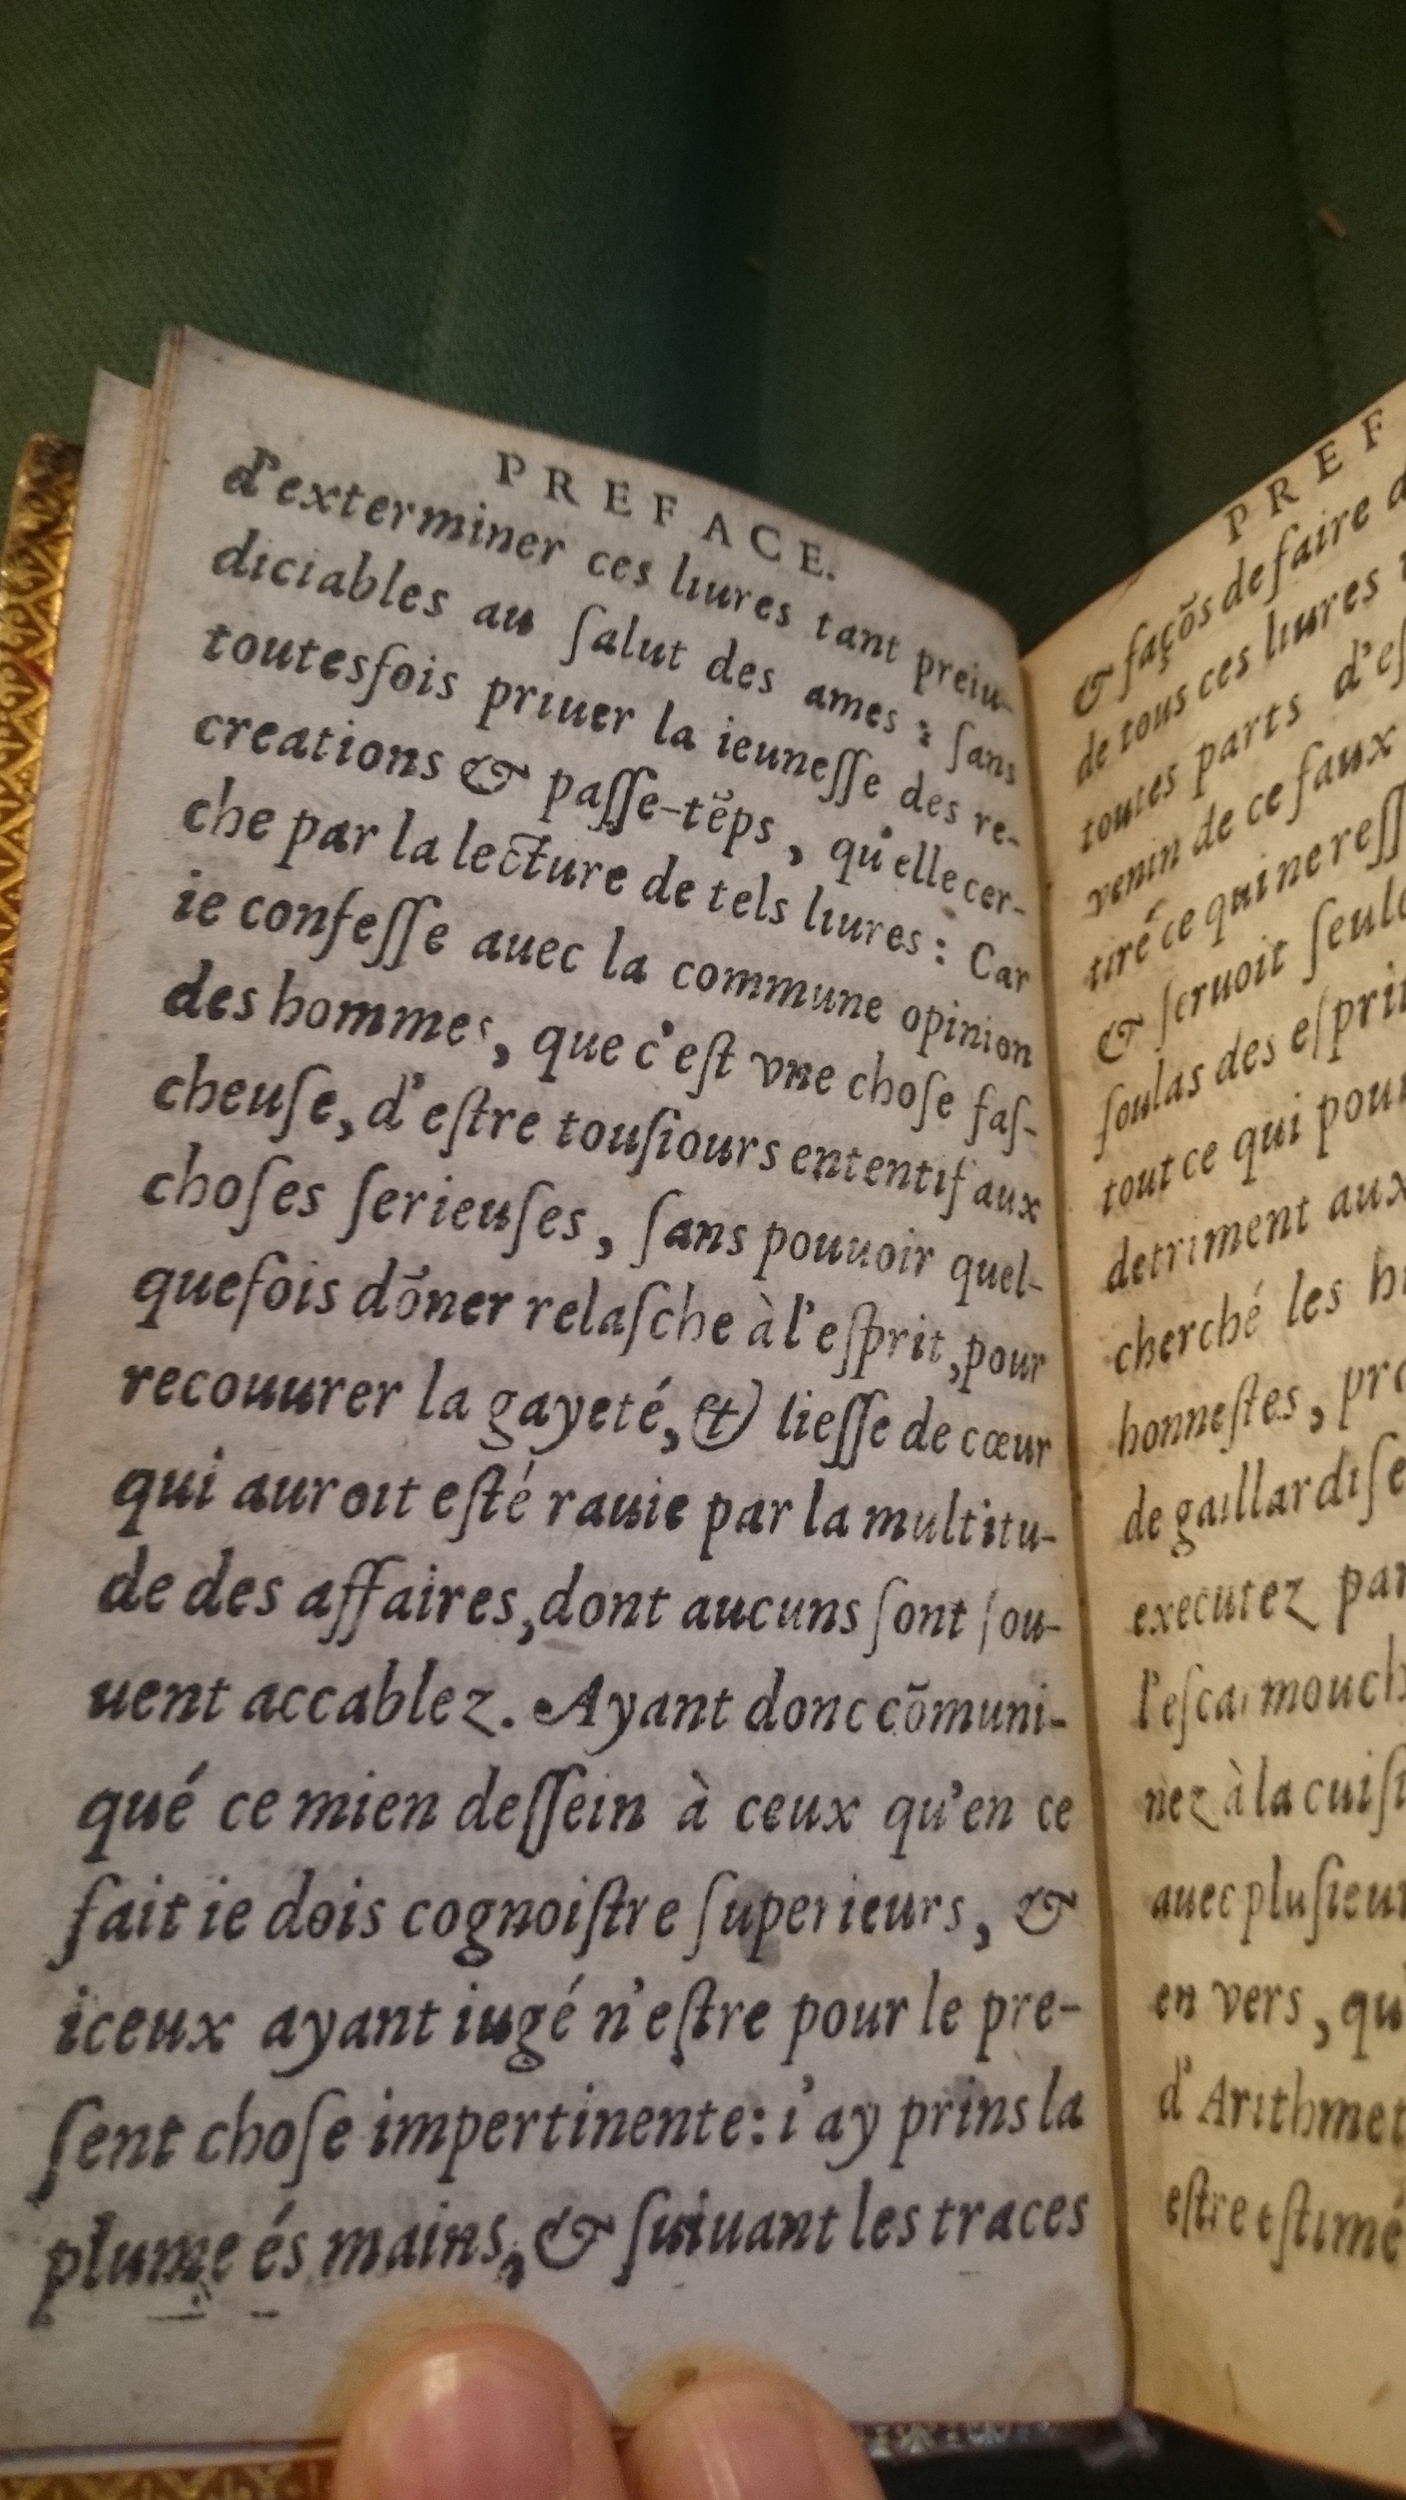 PREFACE.
d'exterminer ces liures tant preiu-
diciables au ſalut des ames : ſans
toutesfois priuer la ieuneſſe des re-
creations & paſſe-tẽps, qu'elle cer-
che par la lecture de tels liures : Car
ie confeſſe auec la commune opinion
des hommes, que c'eſt vne choſe faſ-
cheuſe, d'eſtre touſiours ententif aux
choſes ſerieuſes, ſans pouuoir quel-
quefois dõner relaſche à l'eſprit, pour
recouurer la gayeté, & lieſſe de cœur
qui auroit eſté rauie par la multitu-
de des affaires, dont aucuns ſont ſou-
uent accablez. Ayant donc cõmuni-
qué ce mien deſſein à ceux qu'en ce
fait ie dois cognoiſtre ſuperieurs, &
iceux ayant iugé n'eſtre pour le pre-
ſent choſe impertinente: i'ay prins la
plume és mains, & ſuiuant les traces
PREF
& façõs de faire
de tous ces liures
toutes parts d'eſ
venin de ce faux
tiré ce qui ne reſſ
& ſeruoit ſeule
ſoulas des eſprit
tout ce qui pour
detriment aux
cherché les hi
honneſtes, pro
de gaillardiſe
executez par
l'eſcarmouch
nez à la cuiſi
auec pluſieur
en vers, qu
d'Arithmet
eſtre eſtimé